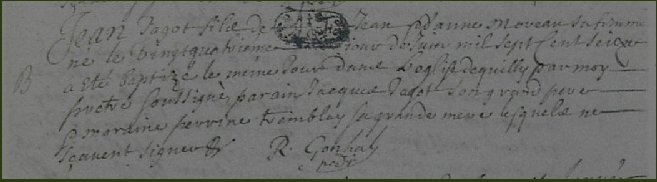 Jean Jagot fils de Jean & danne Moreau sa femme
né le vingtquatrieme jour de Juin mil sept cent seize
B a eté baptizé le méme Jour dans l'eglise de quilly par moy
pretre soussigné parain Jacques Jagot son grand pere
& maraine perrine tremblay sa grande mere lesquels ne
sçavent signer &
R. Gouhal